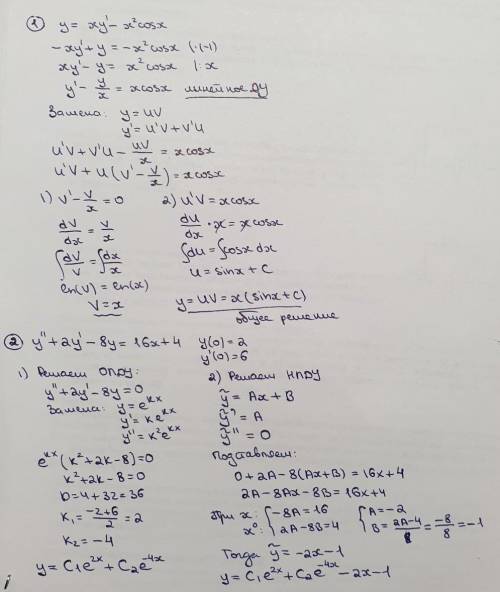 ① y = xy' - x²cosx
-xy' + y = -x²cosx |·(-1)
xy' - y = x²cosx |: x
y' - y/x = xcosx линейное ДУ
Замена: y = UV
y' = U'V + V'U
U'V + V'U - UV/x = xcosx
U'V + U(V' - V/x) = xcosx
1) V' - V/x = 0
dV/dx = V/x
∫dV/V = ∫dx/x
ln(V) = ln(x)
V = x
2) U'V = xcosx
dU/dx · x = xcosx
∫dU = ∫cosx dx
U = sinx + C
y = UV = x(sinx + C)
общее решение
② y'' + 2y' - 8y = 16x + 4 y(0) = 2
y'(0) = 6
1) Решаем ОЛДУ:
y'' + 2y' - 8y = 0
Замена: y = e^kx
y' = ke^kx
y'' = k²e^kx
e^kx(k² + 2k - 8) = 0
k² + 2k - 8 = 0
D = 4 + 32 = 36
k₁ = (-2+6)/2 = 2
k₂ = -4
y = C₁e^2x + C₂e^-4x
2) Решаем НЛДУ
ỹ = Ax + B
ỹ' = A
ỹ'' = 0
Подставляем:
0 + 2A - 8(Ax + B) = 16x + 4
2A - 8Ax - 8B = 16x + 4
При x: { -8A = 16 { A = -2
x⁰: { 2A - 8B = 4 { B = (2A-4)/8 = -8/8 = -1
Тогда ỹ = -2x - 1
y = C₁e^2x + C₂e^-4x - 2x - 1